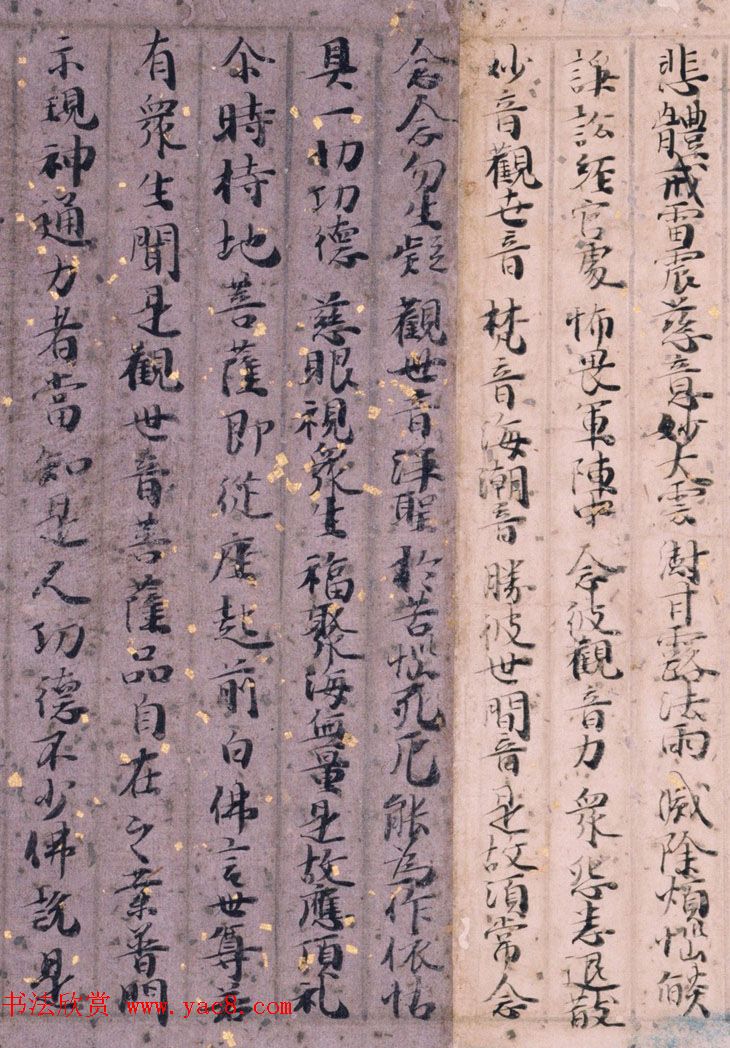 悲體戒雷震 慈意妙大雲 澍甘露法雨 滅除煩惱焰
諍訟經官處 怖畏軍陣中 念彼觀音力 衆怨悉退散
妙音觀世音 梵音海潮音 勝彼世間音 是故須常念
念念勿生疑 觀世音淨聖 於苦惱死厄 能為作依怙
具一切功德 慈眼視衆生 福聚海無量 是故應頂礼
尒時持地菩薩即從座起前白佛言世尊若
有衆生聞是觀世音菩薩品自在之業普門
示現神通力者當知是人功德不少佛說是
书法欣赏 www.yac8.com